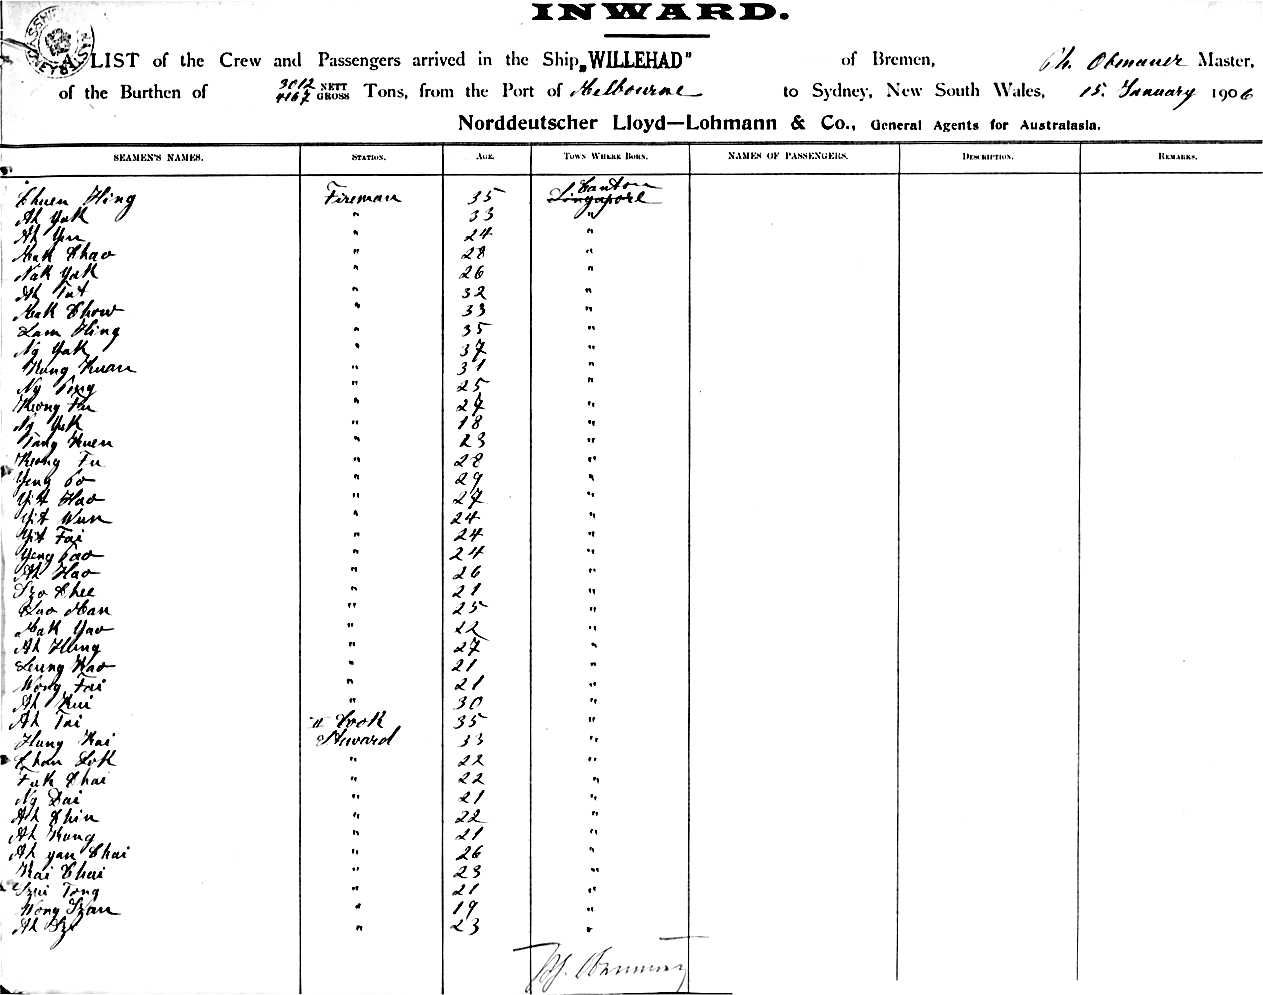 INWARD.
A LIST of the Crew and Passengers arrived in the Ship "WILLEHAD" of Bremen, Ch. Obenauer Master,
of the Burthen of 3012 NETT 4167 GROSS Tons, from the Port of Melbourne to Sydney, New South Wales, 15. January 1906
Norddeutscher Lloyd—Lohmann & Co., General Agents for Australasia.
SEAMEN'S NAMES. STATION. AGE. TOWN WHERE BORN. NAMES OF PASSENGERS. DESCRIPTION. REMARKS.
Canton
Chuen Hing Fireman 35 Singapore
Ah Yok " 33 "
Ah Yun " 24 "
Mak Chao " 28 "
Nak Yok " 26 "
Ah Tat " 32 "
Mak Chow " 33 "
Lam Hing " 35 "
Ng Yak " 37 "
Kung Kuan " 31 "
Ng " 25 "
Keong Fu " 27 "
Ng Yuk " 18 "
Tang Kuen " 23 "
Keong Fu " 28 "
Yeng " 29 "
Yit Hao " 27 "
Yit Wun " 24 "
Yit Fai " 24 "
Yeng " 24 "
Ah Hao " 26 "
Szo Chee " 21 "
Man " 25 "
Mak Yao " 22 "
Ah Hung " 27 "
Leung Kao " 21 "
Wong Fai " 21 "
Ah Kui " 30 "
Ah Tai " Cook 35 "
Hung Kai Steward 33 "
Chan Lok " 22 "
Fuk Chai " 22 "
Ng Dai " 21 "
Ah Chin " 22 "
Ah Kung " 21 "
Ah yan Chai " 26 "
Kai Chai " 23 "
Szui Tong " 21 "
Wong Szan " 19 "
Ah " 23 "